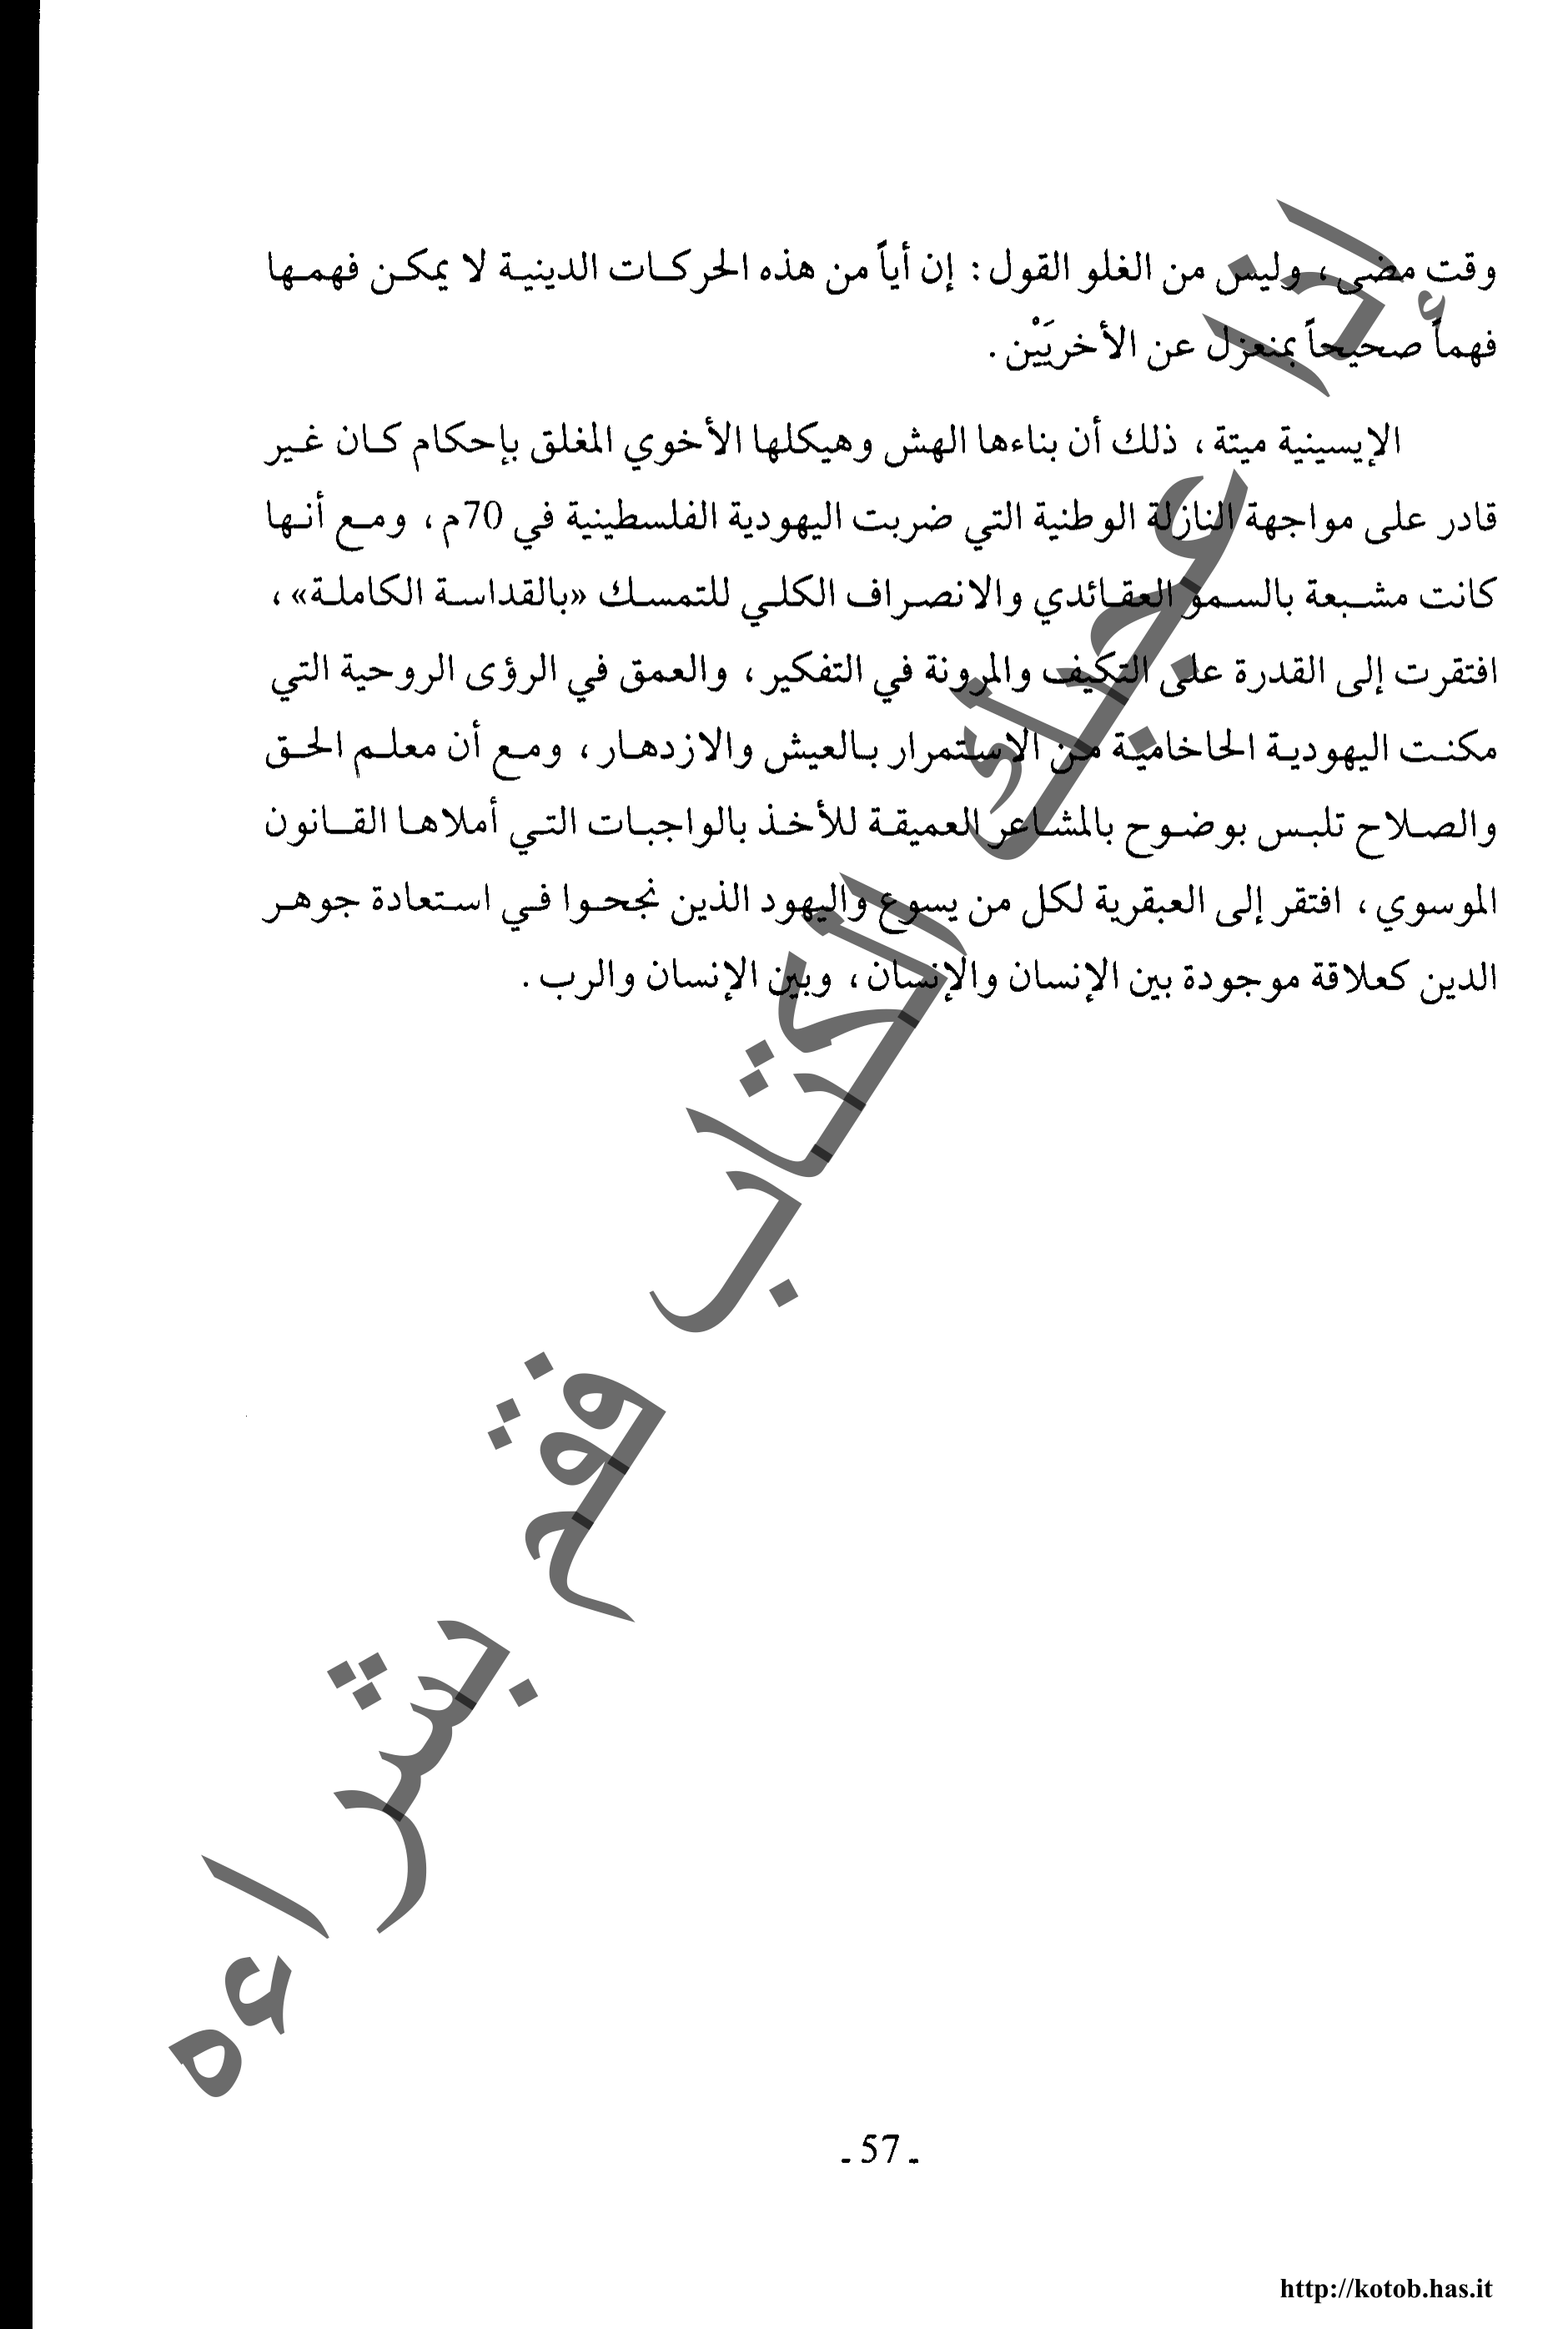 وقت مضى، وليس من الغلو القول: إن أياً من هذه الحركات الدينية لا يمكن فهمها
فهماً صحيحاً بمنعزل عن الأخريَيْن.
الإيسينية ميتة، ذلك أن بناءها الهش وهيكلها الأخوي المغلق بإحكام كان غير
قادر على مواجهة النازلة الوطنية التي ضربت اليهودية الفلسطينية في 70م، ومع أنها
كانت مشبعة بالسمو العقائدي والانصراف الكلي للتمسك «بالقداسة الكاملة»،
افتقرت إلى القدرة على التكيف والمرونة في التفكير، والعمق في الرؤى الروحية التي
مكنت اليهودية الحاخامية من الاستمرار بالعيش والازدهار، ومع أن معلم الحق
والصلاح تلبس بوضوح بالمشاعر العميقة للأخذ بالواجبات التي أملاها القانون
الموسوي، افتقر إلى العبقرية لكل من يسوع واليهود الذين نجحوا في استعادة جوهر
الدين كعلاقة موجودة بين الإنسان والإنسان، وبين الإنسان والرب.
إذا أعجبك الكتاب فقم بشراءه
- 57 -
http://kotob.has.it